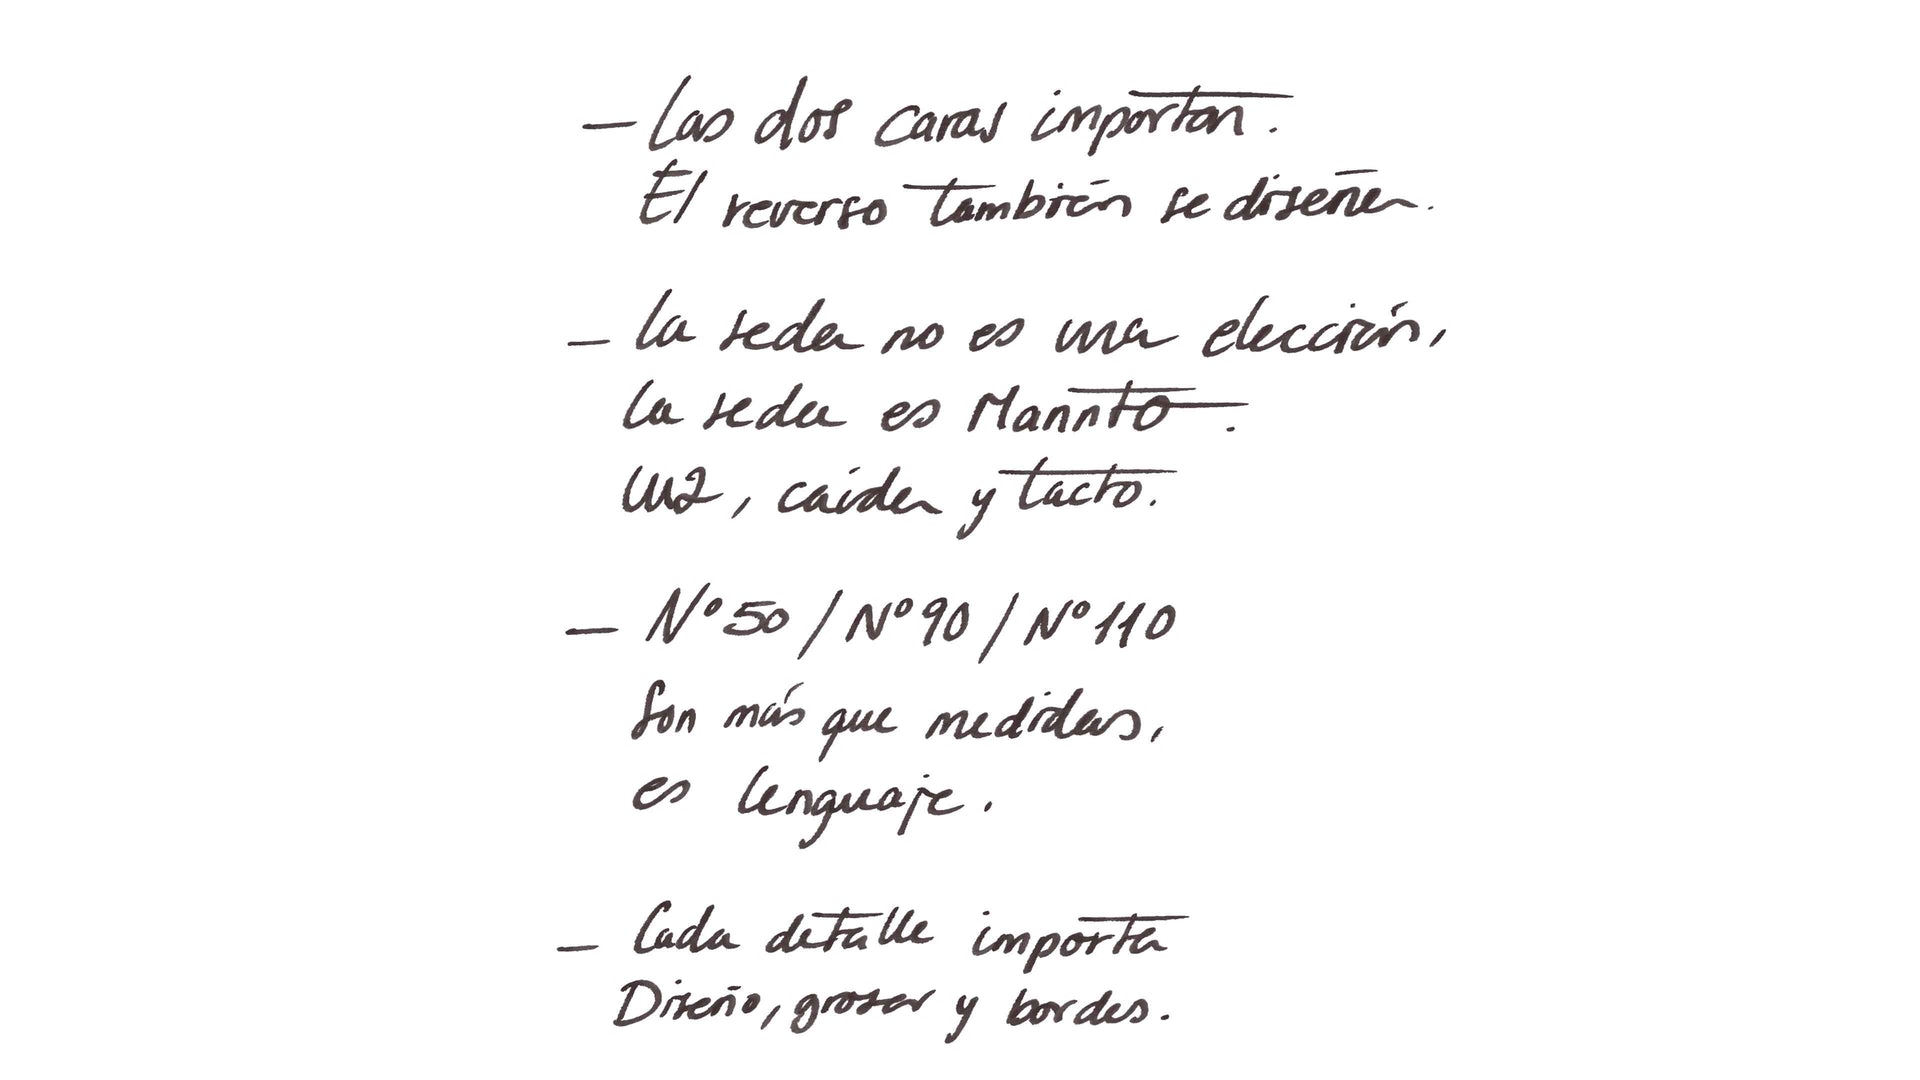 — Las dos caras importan.
El reverso también se diseña.
— La seda no es una elección,
la seda es Mannto.
Luz, caída y tacto.
— Nº50 / Nº90 / Nº110
Son más que medidas,
es lenguaje.
— Cada detalle importa
Diseño, grosor y bordes.